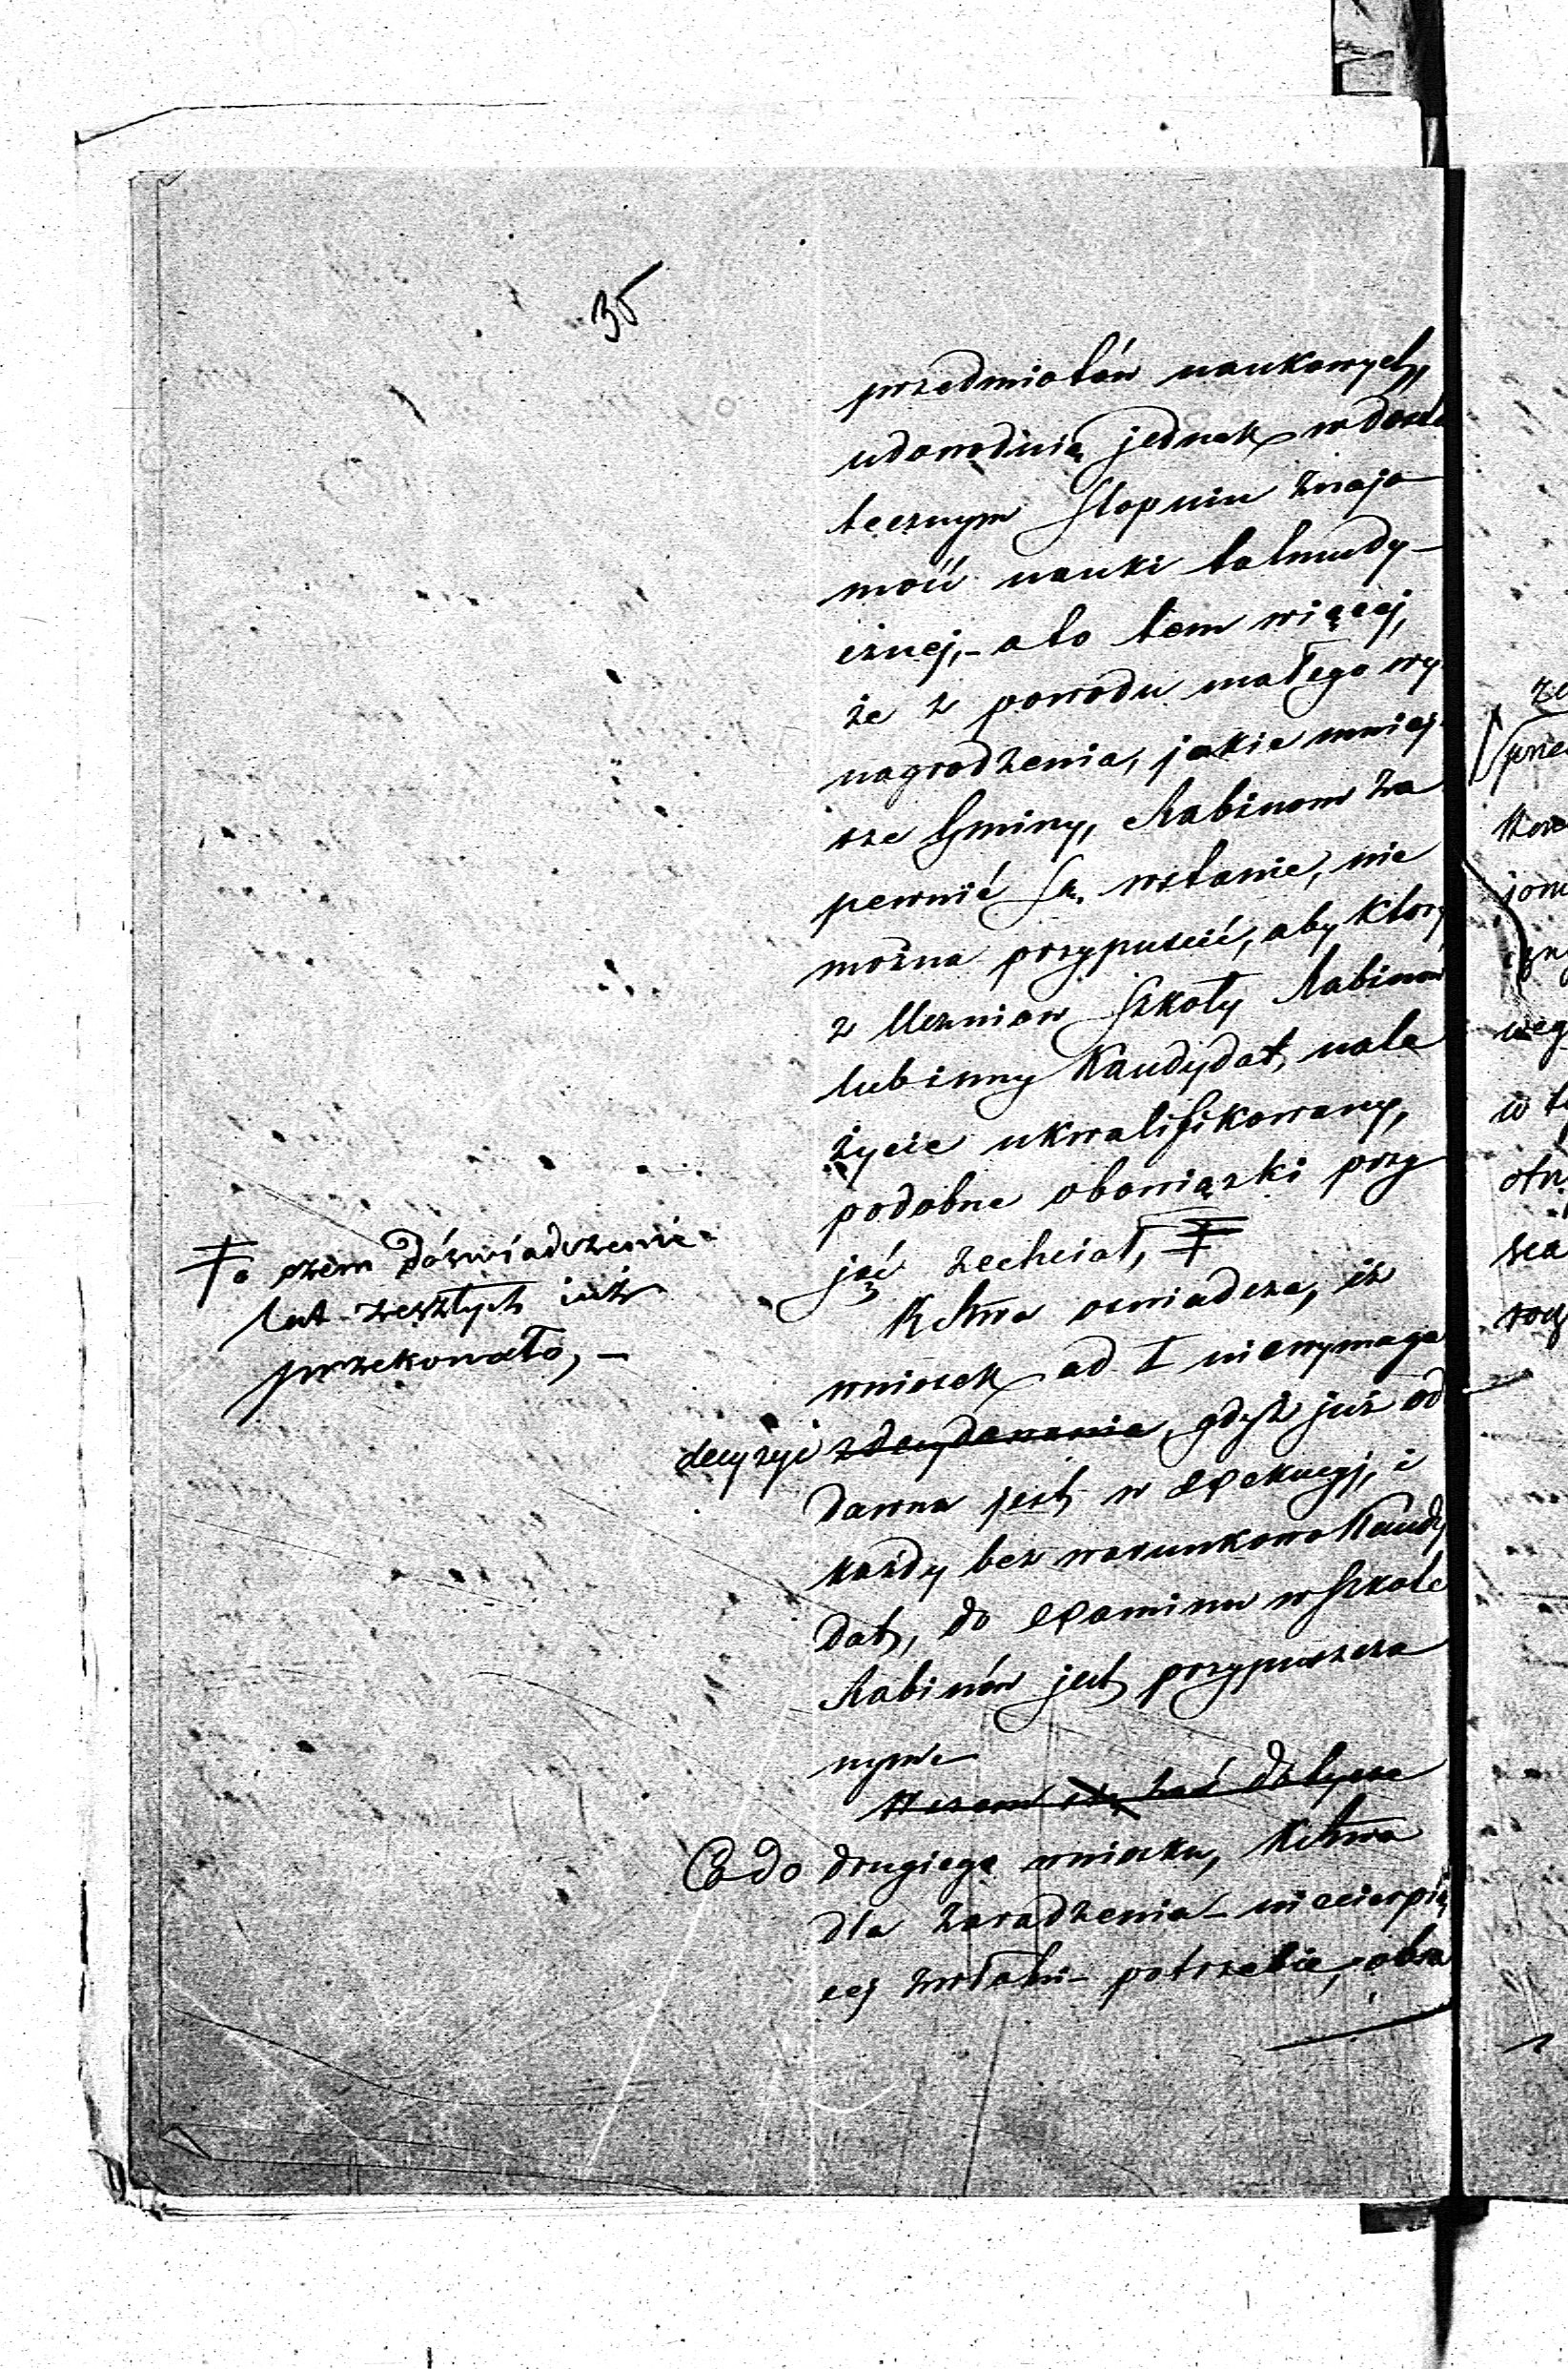 35
przedmiotów naukowych,
udowodnią jednak w dosta
tecznym stopniu znajo-
mość nauki talmudy-
cznej,- a to tem więcej,
że z powodu małego wy-
nagrodzenia, jakie mniej-
sze Gminy, Rabinom za
pewnić są wstanie, nie
można przypuścić, aby który
z Uczniow Szkoły Rabinów
lub inny Kandydat, nale
życie ukwalifikowany,
podobne obowiązki przy
jąć zechciał, ╪
╪ o czem doświadczenie
lat zeszłych już
przekonało, -
oswiadcza, iż
wniosek ad I niewymaga
decyzyi zdecydowania, gdyż już od
dawna jest w exekucyj, i
każdy bez warunkowo Kandy
dat, do examinu w Szkole
Rabinów jest przypuszcza
nym-
się zaś dotycze
Co do drugiego wniosku,
dla zaradzenia niecierpią
cej zwłoki potrzebie,